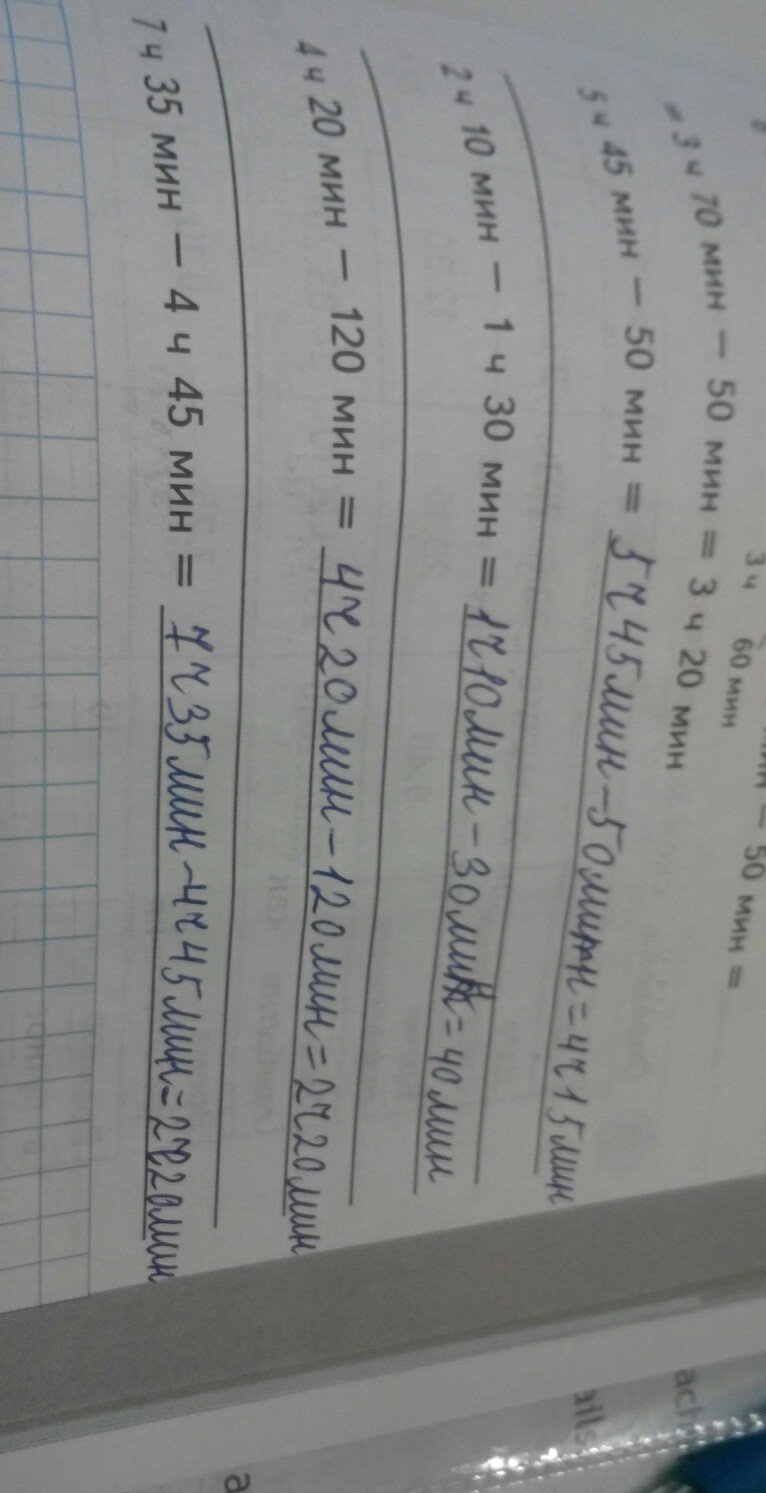 мин – 50 мин =
3 ч 60 мин
= 3 ч 70 мин – 50 мин = 3 ч 20 мин
5 ч 45 мин – 50 мин = 5ч45мин-50мин=4ч15мин
2 ч 10 мин – 1 ч 30 мин = 1ч10мин-30мин=40мин
4 ч 20 мин – 120 мин = 4ч20мин-120мин=2ч20мин
7 ч 35 мин – 4 ч 45 мин = 7ч35мин-4ч45мин=2ч20мин
ach
ails
a